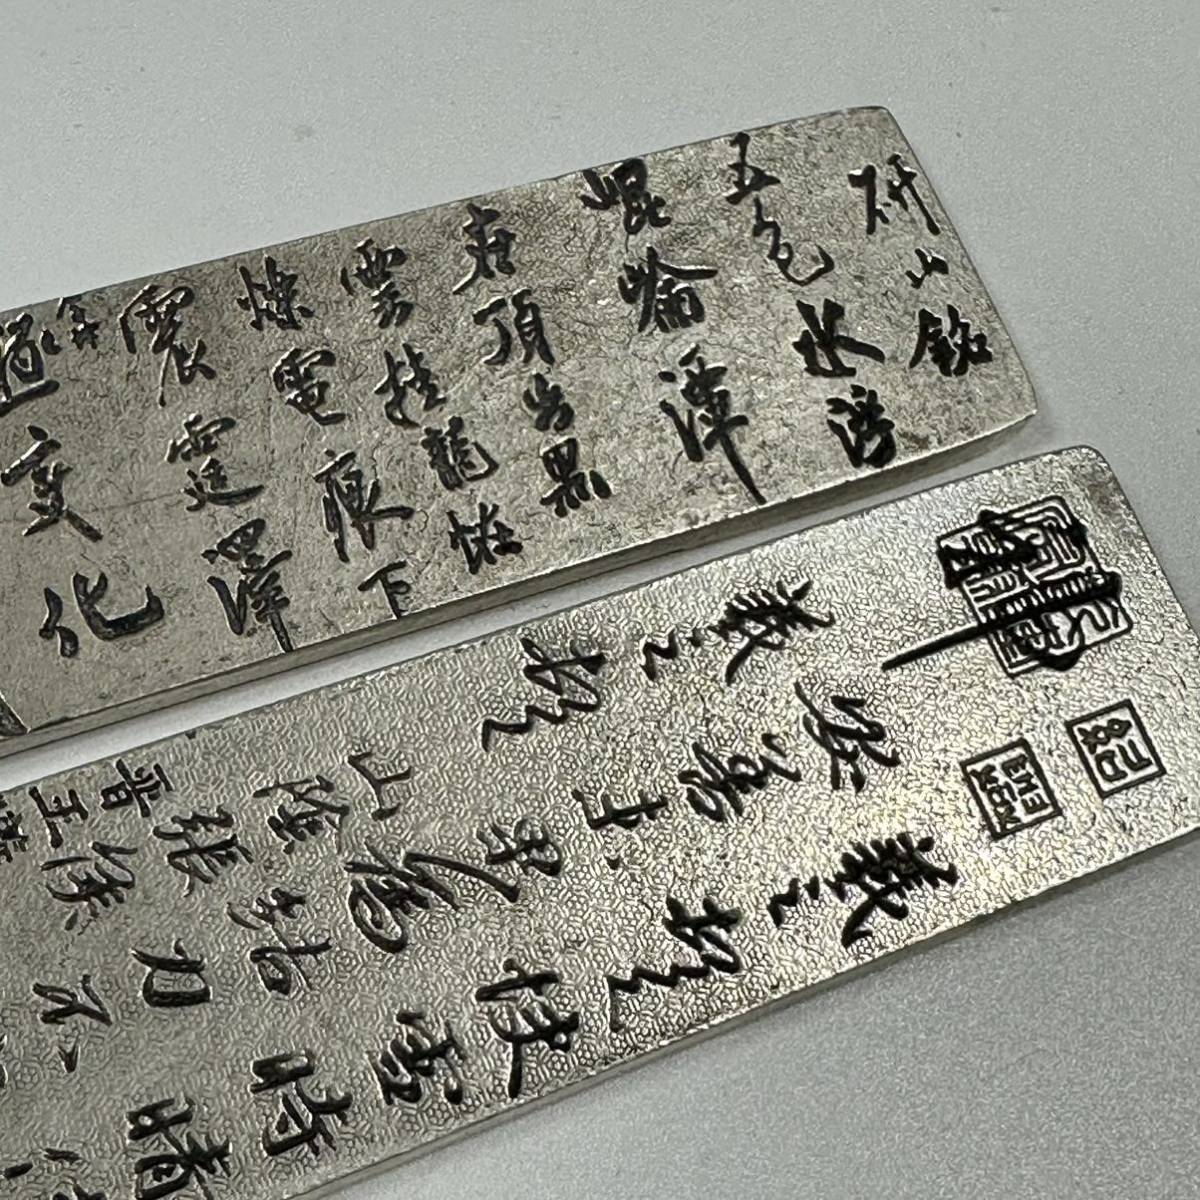 研山銘
五色水浮
崐崘潭
在頂出黑
雲挂龍怪
爍電痕下
震霆澤
變化
神
羲之頓首快雪時晴
安善未果為結力不
羲之頓首
山陰張侯
晉王羲